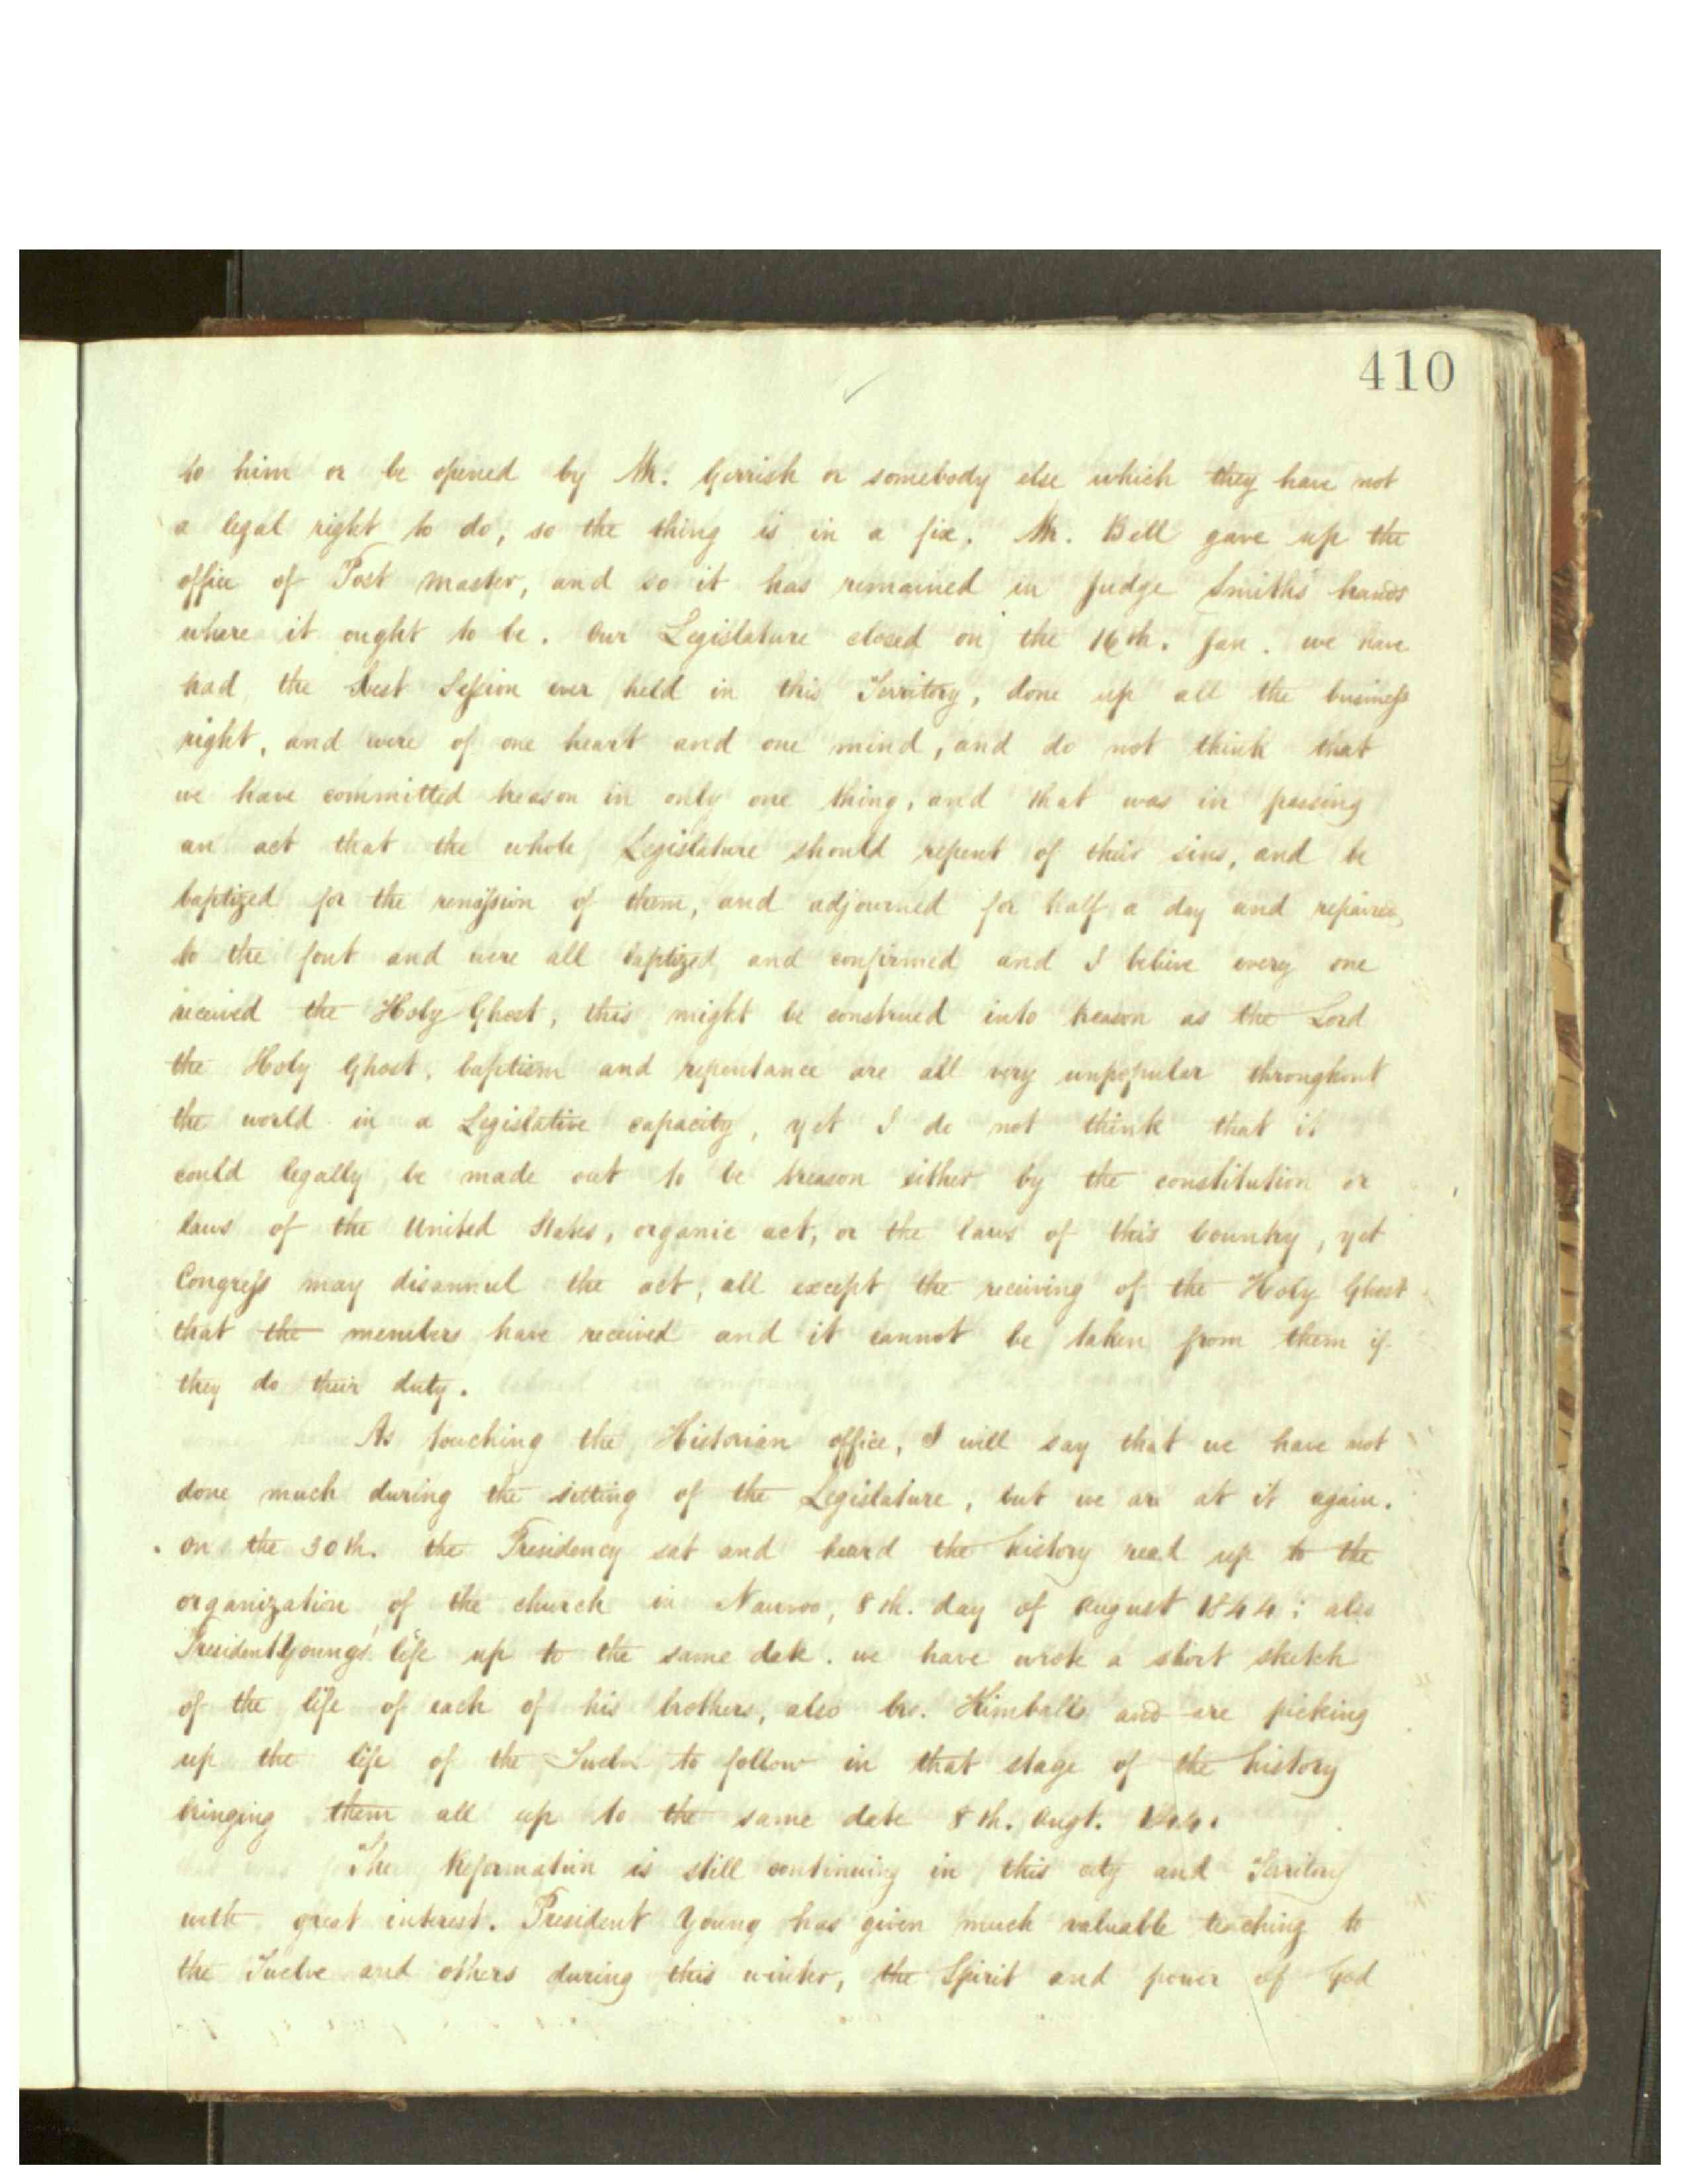 410
to him or be opened by Mr. Gerrish or somebody else which they have not
a legal right to do, so the thing is in a fix. Mr. Bell gave up the
office of Post master, and so it has remained in Judge Smiths hands
where it ought to be. Our Legislature closed on the 16th. Jan. we have
had the best Session ever held in this Territory, done up all the business
right, and were of one heart and one mind, and do not think that
we have committed treason in only one thing, and that was in passing
an act that the whole Legislature should repent of their sins, and be
baptized for the remission of them, and adjourned for half a day and repaired
to the font and were all baptized and confirmed and I believe every one
received the Holy Ghost, this might be construed into treason as the Lord
the Holy Ghost, baptism and repentance are all very unpopular throughout
the world in a Legislative capacity, yet I do not think that it
could legally be made out to be treason either by the constitution or
laws of the United States, organic act, or the laws of this Country, yet
Congress may disannul the act, all except the receiving of the Holy Ghost
that the members have received and it cannot be taken from them if
they do their duty.
As touching the Historian office, I will say that we have not
done much during the sitting of the Legislature, but we are at it again.
on the 30th. the Presidency sat and heard the history read up to the
organization of the church in Nauvoo, 8th. day of August 1844; also
President Youngs life up to the same date. we have wrote a short sketch
of the life of each of his brothers, also br. Kimballs and are picking
up the life of the Twelve to follow in that stage of the history
bringing them all up to the same date 8th. Augt. 1844.
The Reformation is still continuing in this city and Territory
with great interest. President Young has given much valuable teaching to
the Twelve and others during this winter, the Spirit and power of God